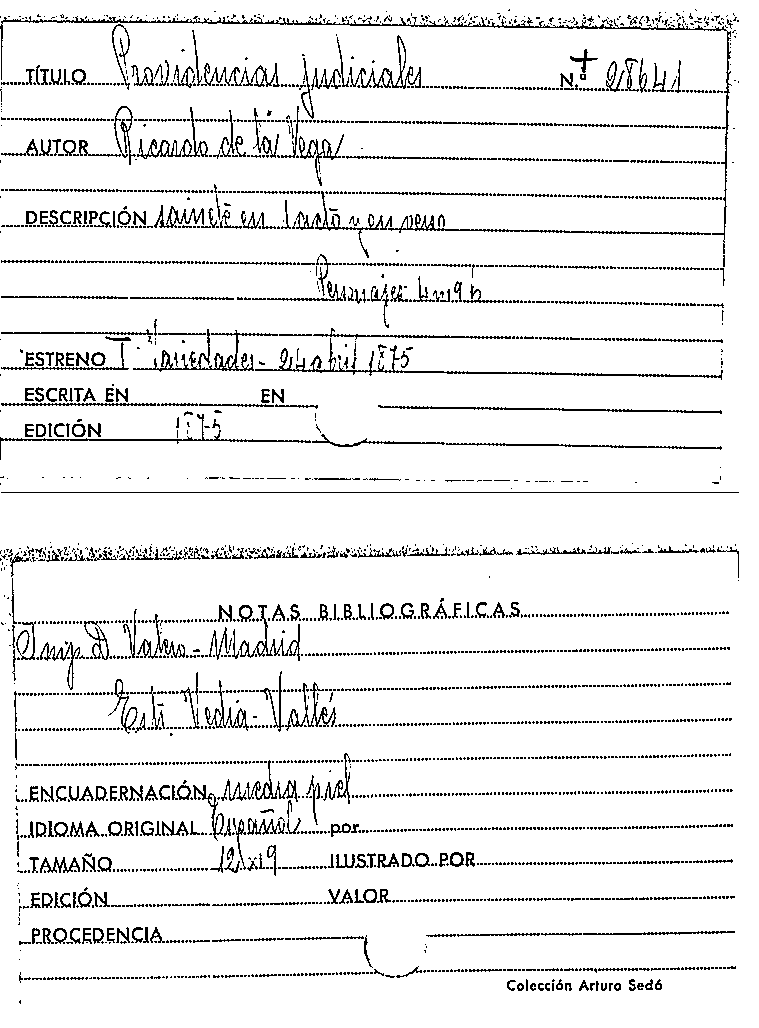 TÍTULO Providencias judiciales N.º + 28641
AUTOR Ricardo de la Vega
DESCRIPCIÓN sainete en 1 acto y en verso
Personajes 4 m 9 h
ESTRENO T. Variedades - 24 abril 1875
ESCRITA EN EN
EDICIÓN 1875
NOTAS BIBLIOGRÁFICAS
Imp. D. Valero - Madrid
Estr. Vedia - Vallés
ENCUADERNACIÓN media piel
IDIOMA ORIGINAL Español por
TAMAÑO 12x19 ILUSTRADO POR
EDICIÓN VALOR
PROCEDENCIA
Colección Arturo Sedó